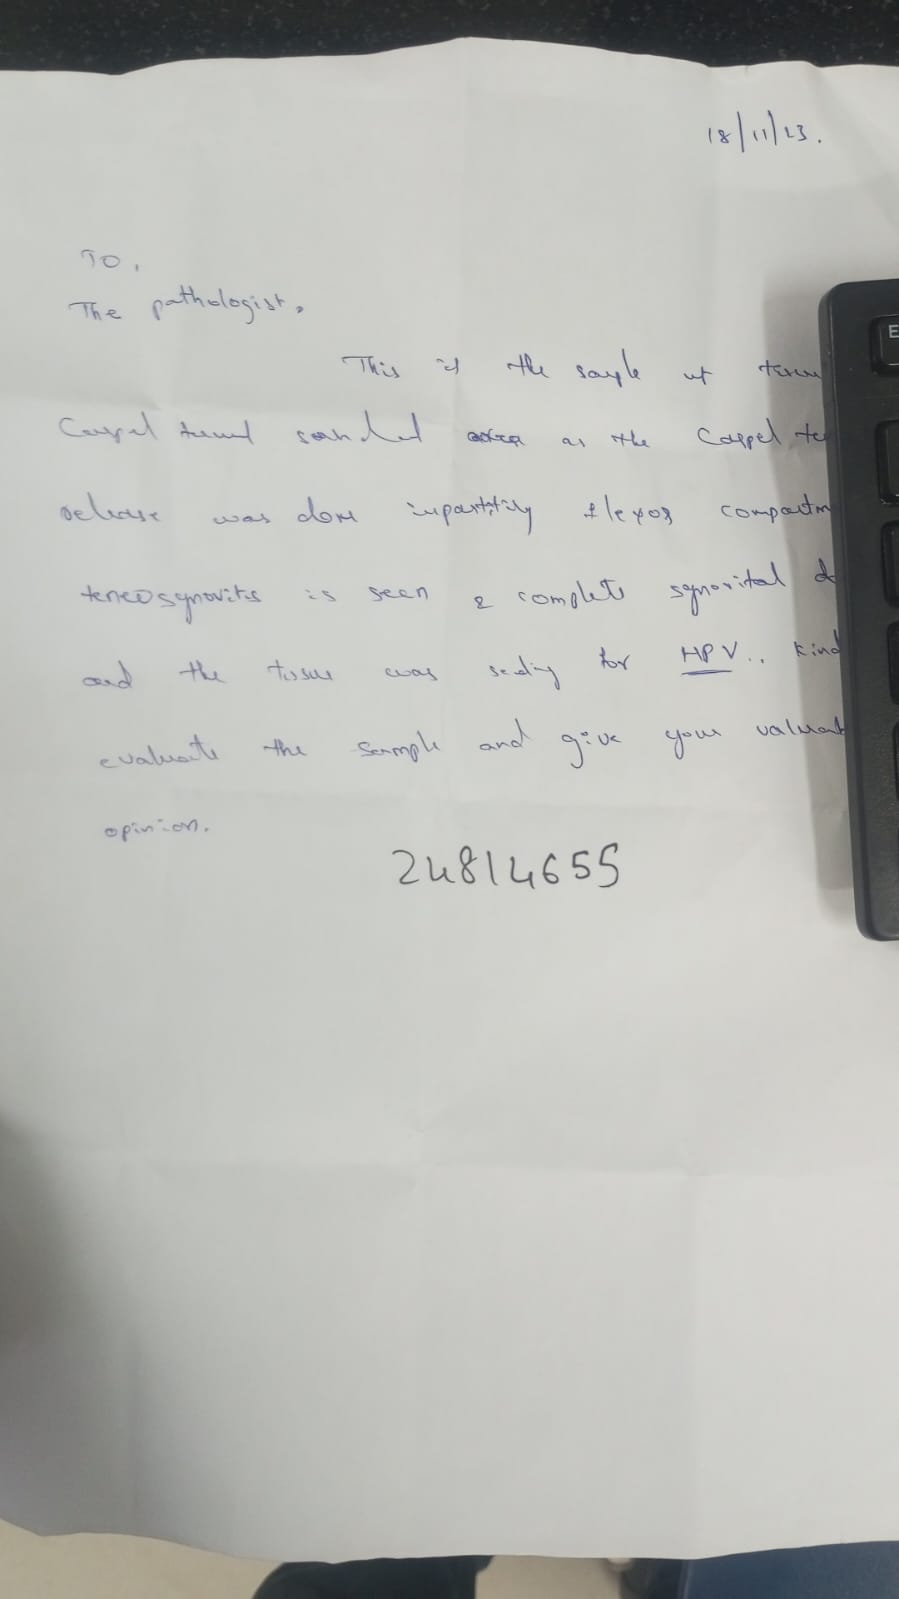 18/11/23.
TO,
The pathologist,
This is the sample of
Carpel tunnel as the Carpel
release was done flexor compartm
teneosynovitis is seen & complete synovital
and the tissue was sending for HPV.. Kind
evaluate the sample and give your valuab
opinion.
24814655
E